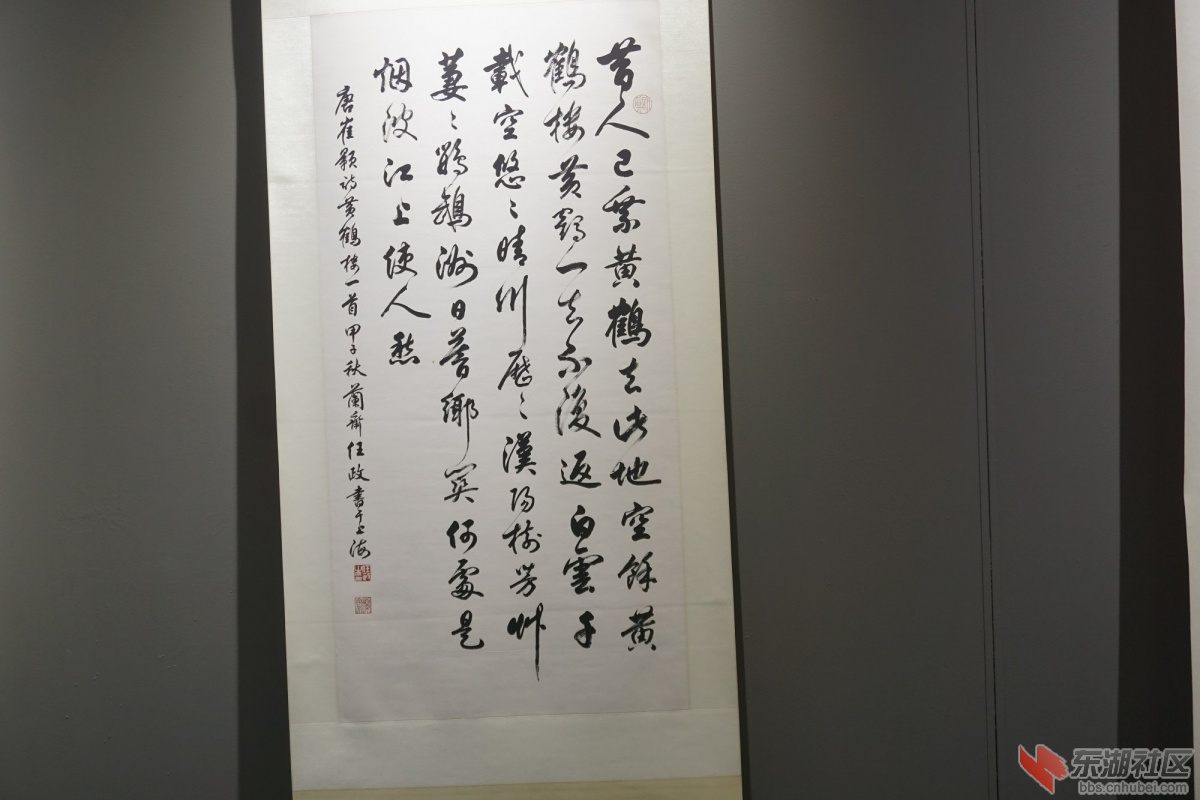 昔人已乘黃鶴去此地空餘黃
鶴樓黃鶴一去不復返白雲千
載空悠〻晴川歷〻漢陽樹芳艸
萋〻鸚鵡洲日暮鄉関何處是
烟波江上使人愁
唐崔顥詩黃鶴樓一首甲子秋蘭齋任政書于上海
东湖社区
bbs.cnhubei.com